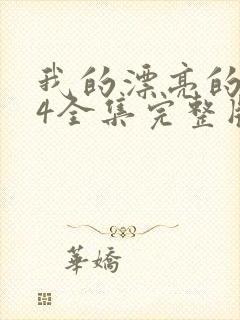 我的漂亮的
4全集完整
華嬌